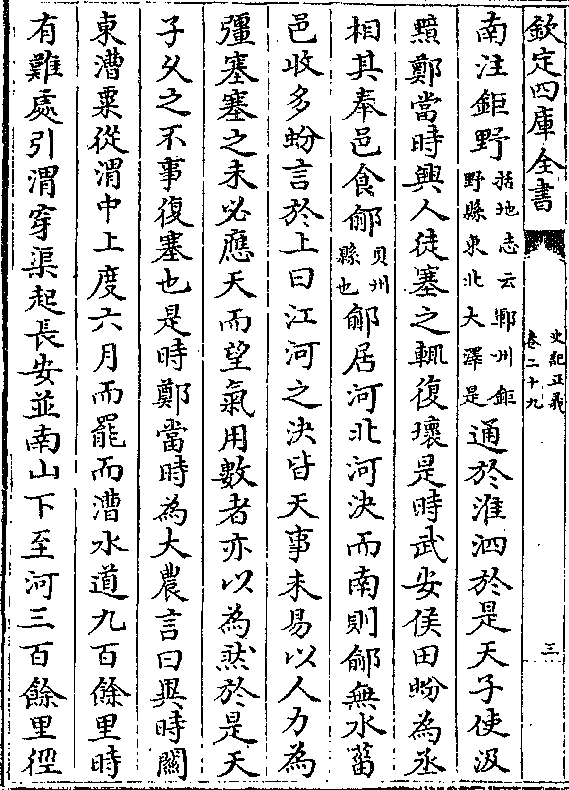 欽定四庫全書
史記正義
卷二十九
三
南注鉅野括地志云鄆州鉅野縣東北大澤是通於淮泗於是天子使汲
黯鄭當時興人徒塞之輒復壞是時武安侯田蚡為丞
相其奉邑食鄃貝州縣也鄃居河北河決而南則鄃無水菑
邑收多蚡言於上曰江河之決皆天事未易以人力為
彊塞塞之未必應天而望氣用數者亦以為然於是天
子乆之不事復塞也是時鄭當時為大農言曰異時關
東漕粟從渭中上度六月而罷而漕水道九百餘里時
有難處引渭穿渠起長安並南山下至河三百餘里徑